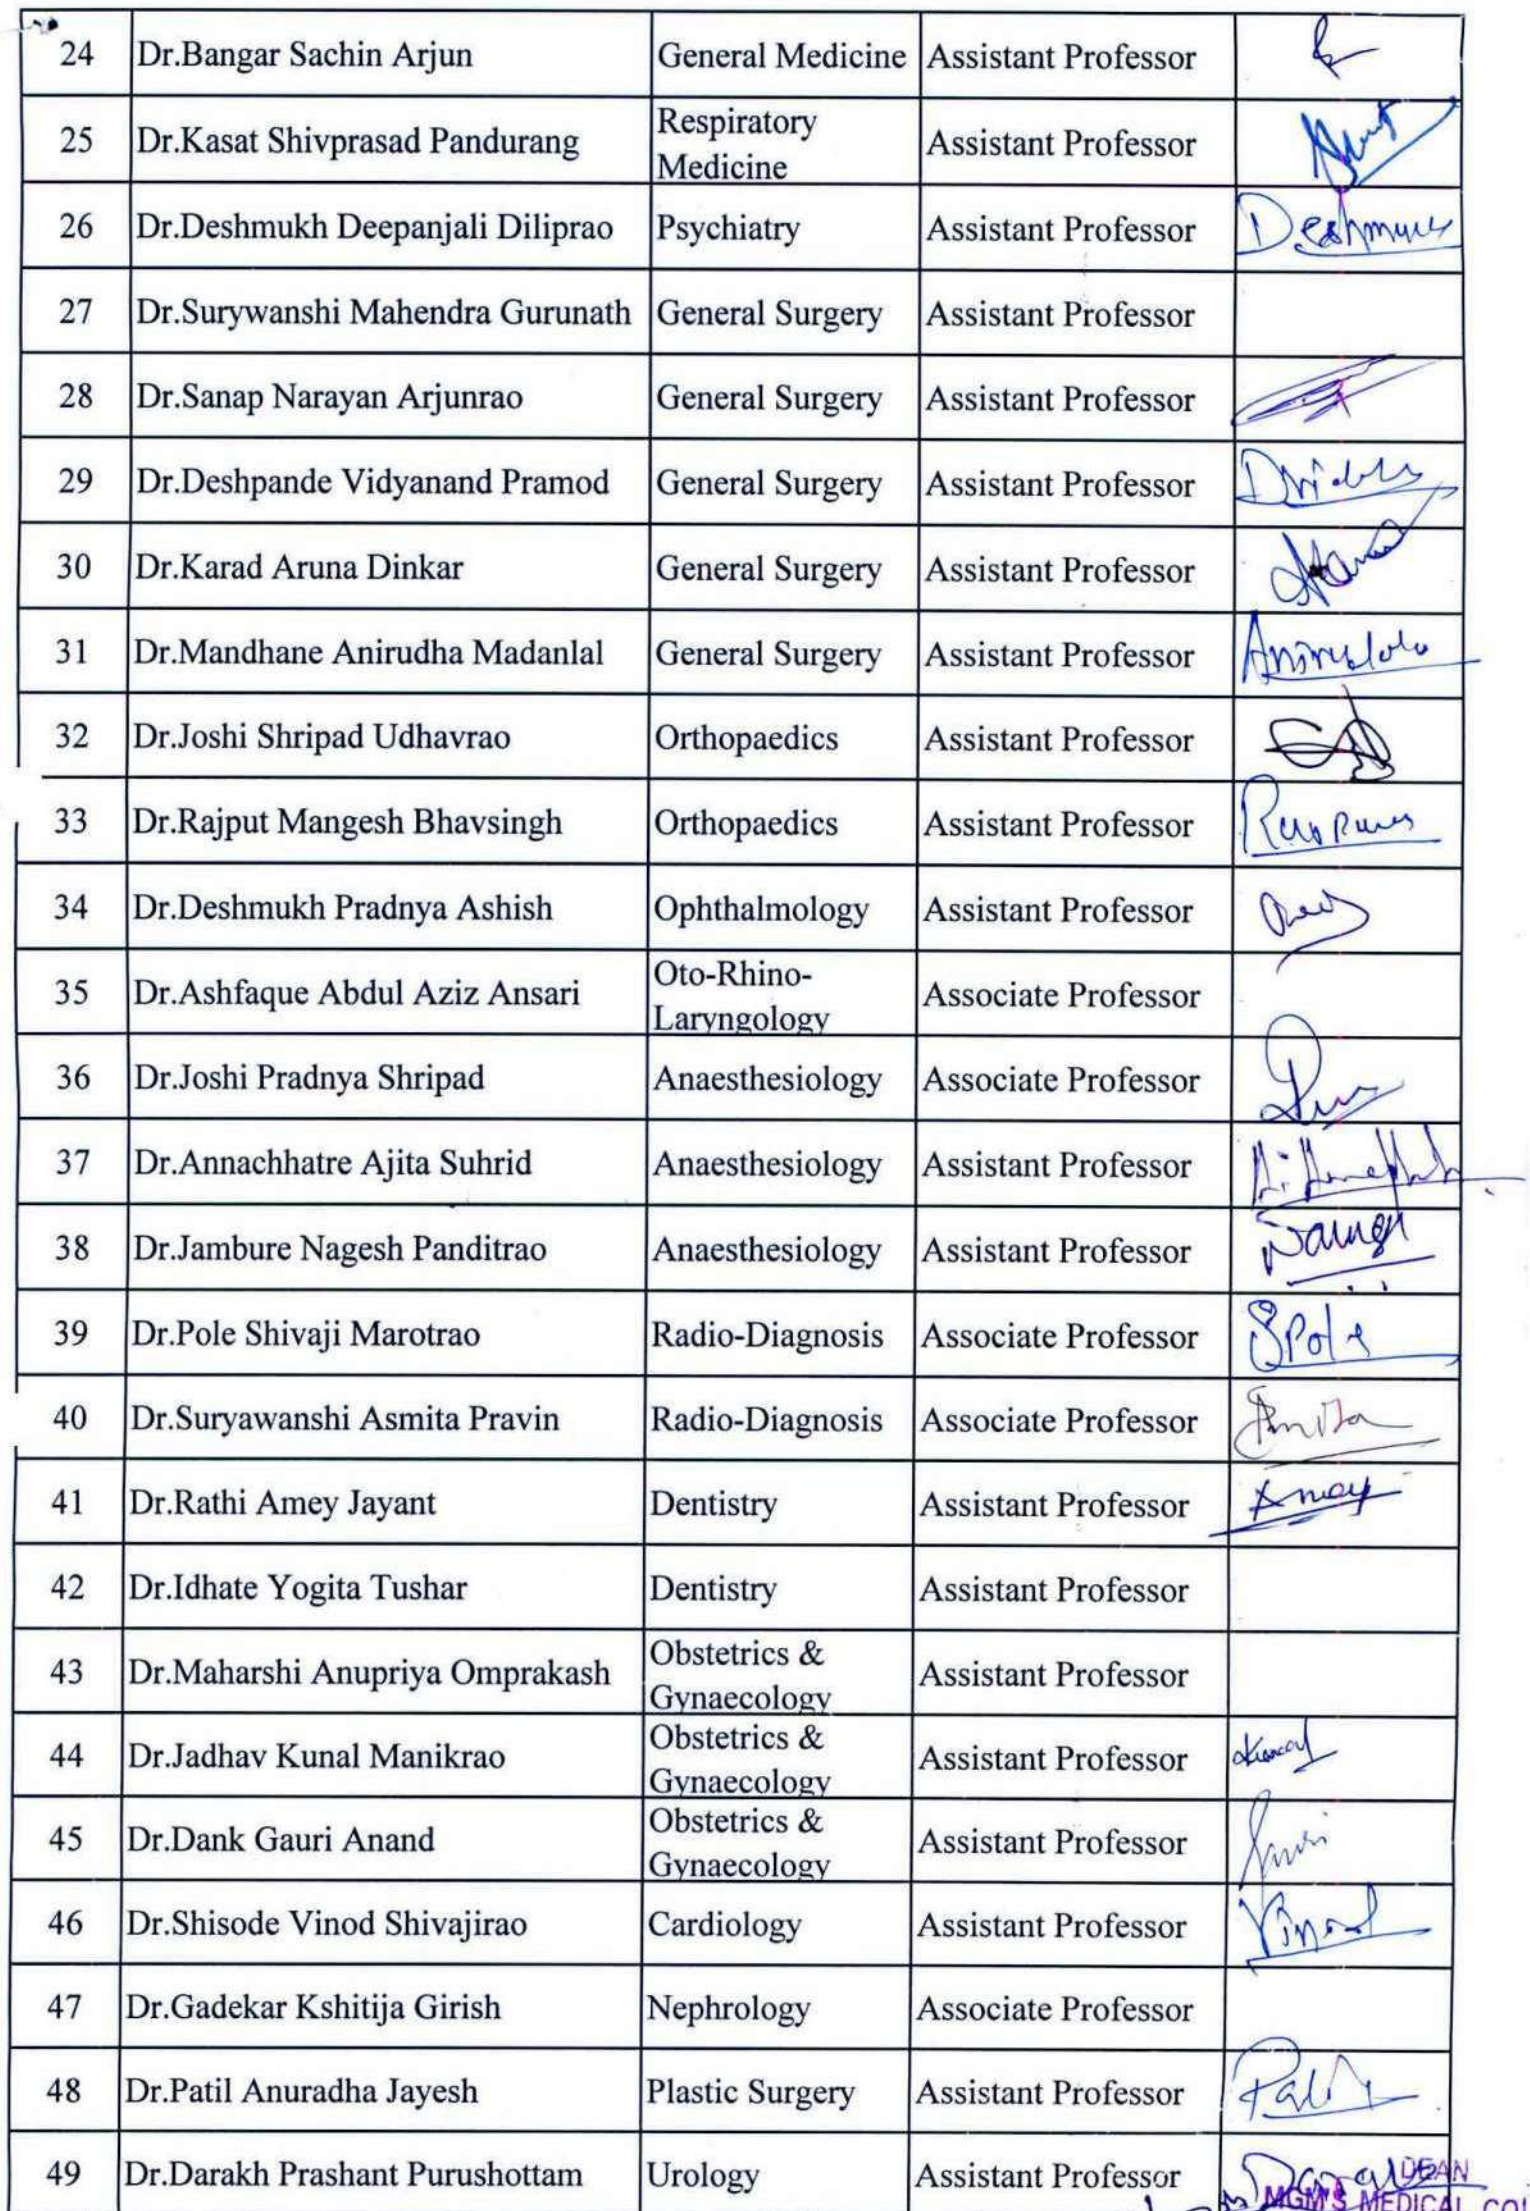 24 Dr.Bangar Sachin Arjun General Medicine Assistant Professor
25 Dr.Kasat Shivprasad Pandurang Respiratory Medicine Assistant Professor
26 Dr.Deshmukh Deepanjali Diliprao Psychiatry Assistant Professor Deshmukh
27 Dr.Surywanshi Mahendra Gurunath General Surgery Assistant Professor
28 Dr.Sanap Narayan Arjunrao General Surgery Assistant Professor
29 Dr.Deshpande Vidyanand Pramod General Surgery Assistant Professor
30 Dr.Karad Aruna Dinkar General Surgery Assistant Professor
31 Dr.Mandhane Anirudha Madanlal General Surgery Assistant Professor
32 Dr.Joshi Shripad Udhavrao Orthopaedics Assistant Professor
33 Dr.Rajput Mangesh Bhavsingh Orthopaedics Assistant Professor
34 Dr.Deshmukh Pradnya Ashish Ophthalmology Assistant Professor
35 Dr.Ashfaque Abdul Aziz Ansari Oto-Rhino-Laryngology Associate Professor
36 Dr.Joshi Pradnya Shripad Anaesthesiology Associate Professor
37 Dr.Annachhatre Ajita Suhrid Anaesthesiology Assistant Professor
38 Dr.Jambure Nagesh Panditrao Anaesthesiology Assistant Professor
39 Dr.Pole Shivaji Marotrao Radio-Diagnosis Associate Professor SPole
40 Dr.Suryawanshi Asmita Pravin Radio-Diagnosis Associate Professor
41 Dr.Rathi Amey Jayant Dentistry Assistant Professor Amey
42 Dr.Idhate Yogita Tushar Dentistry Assistant Professor
43 Dr.Maharshi Anupriya Omprakash Obstetrics & Gynaecology Assistant Professor
44 Dr.Jadhav Kunal Manikrao Obstetrics & Gynaecology Assistant Professor Kunal
45 Dr.Dank Gauri Anand Obstetrics & Gynaecology Assistant Professor
46 Dr.Shisode Vinod Shivajirao Cardiology Assistant Professor Vinod
47 Dr.Gadekar Kshitija Girish Nephrology Associate Professor
48 Dr.Patil Anuradha Jayesh Plastic Surgery Assistant Professor Patil
49 Dr.Darakh Prashant Purushottam Urology Assistant Professor
DEAN
MGM'S MEDICAL COL